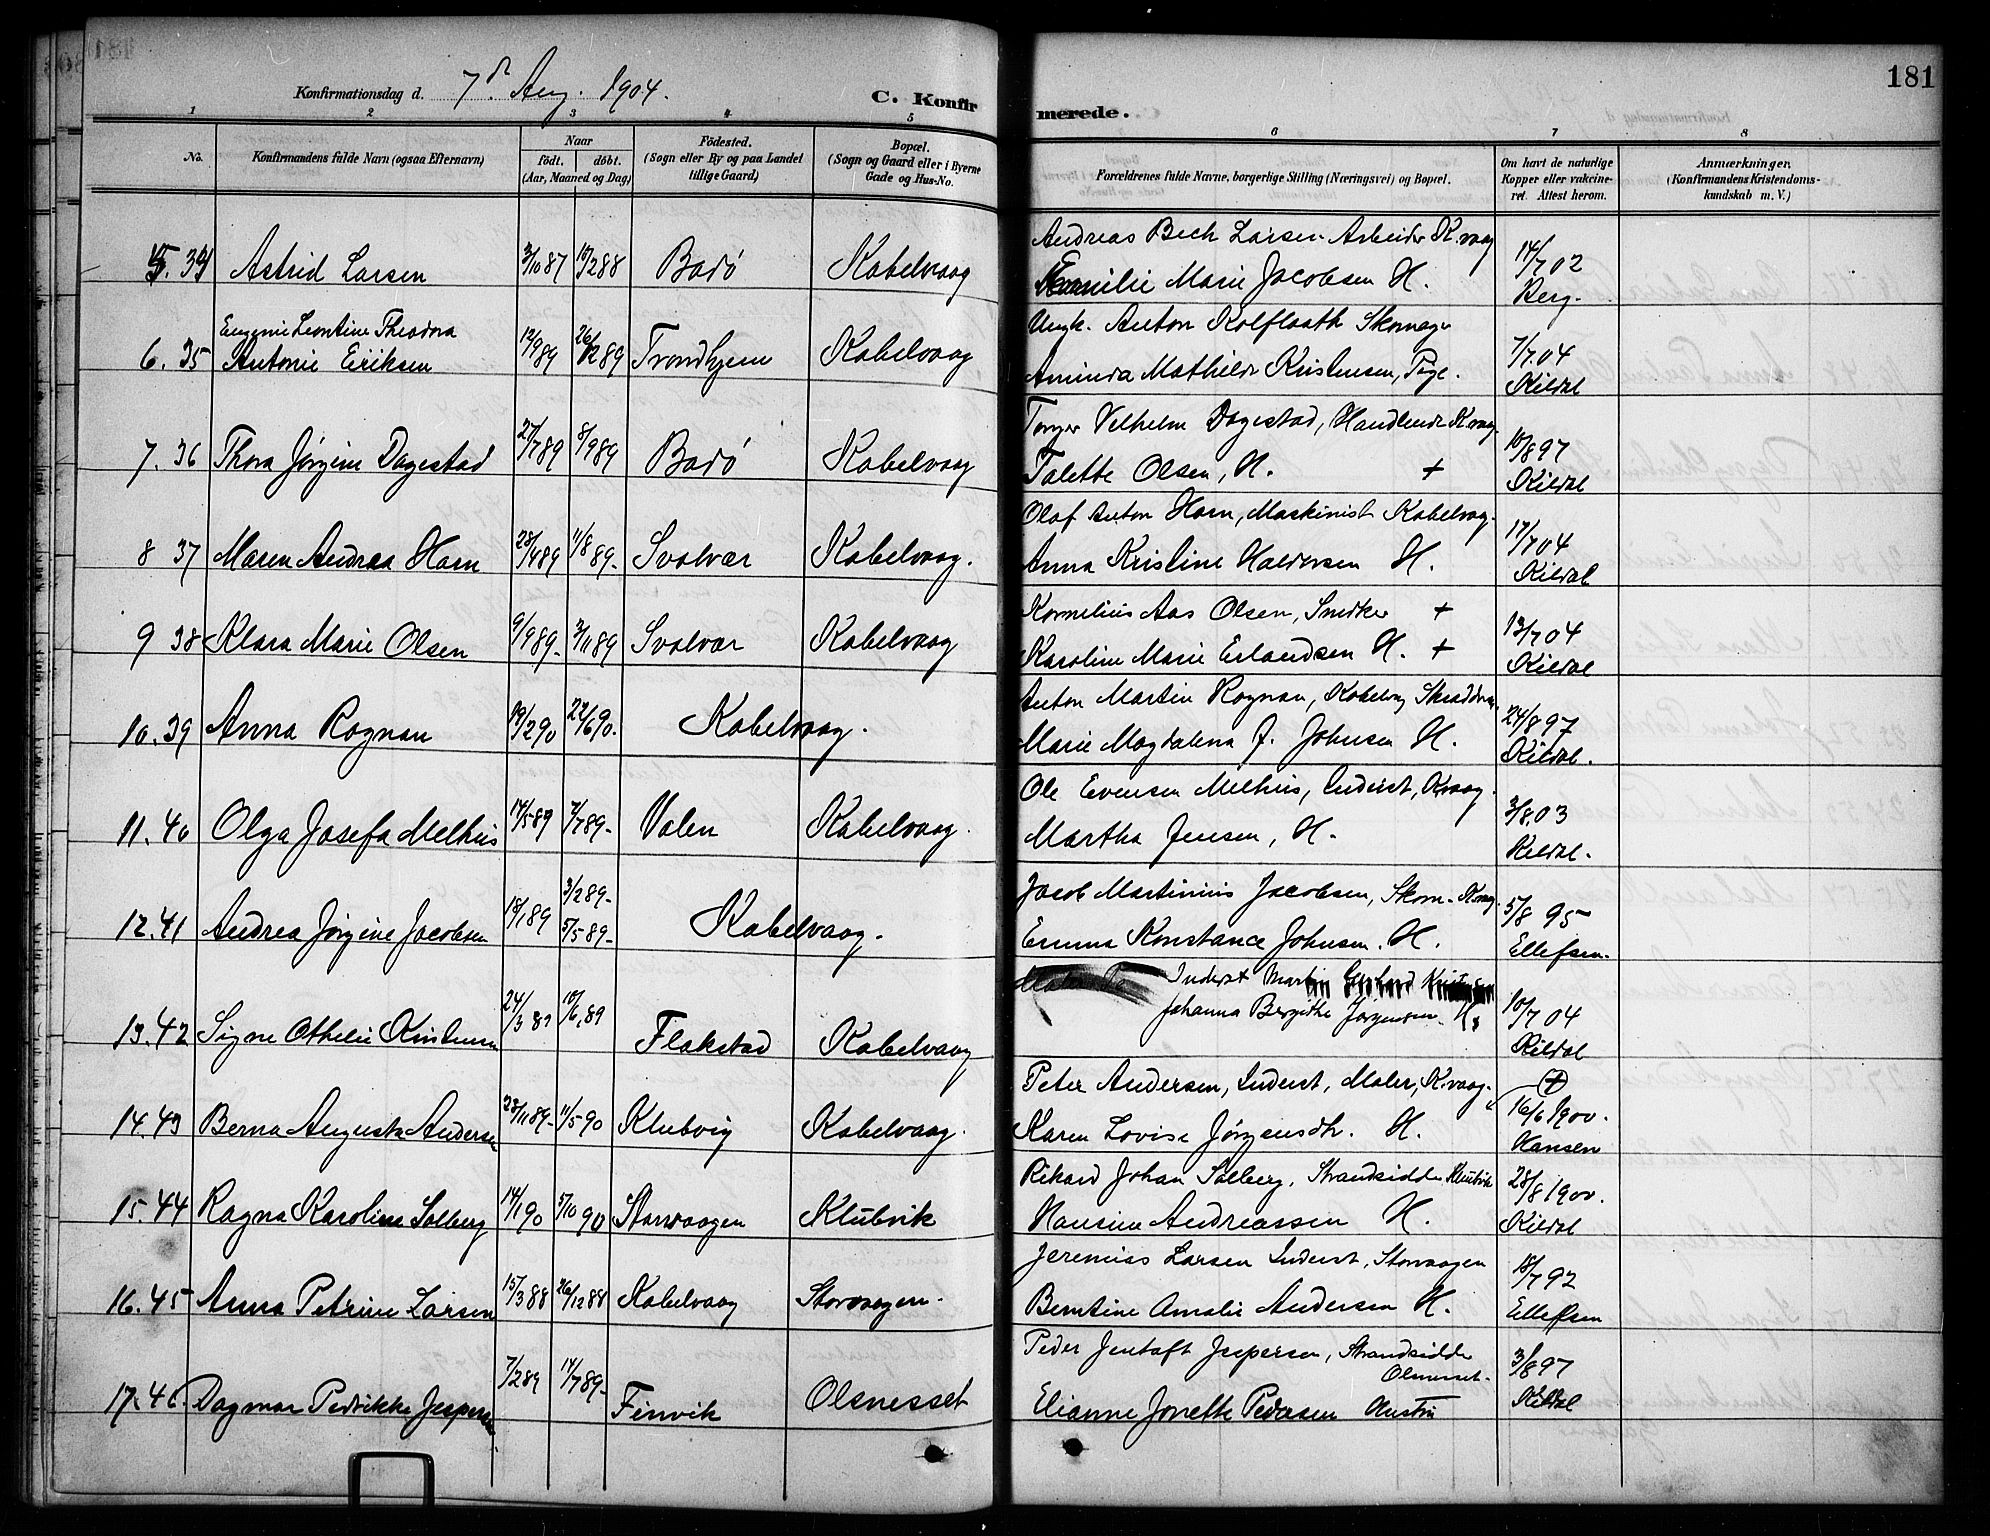 181
Konfirmationsdag d. 7de Aug. 1904.
C. Konfirmerede.
1 2 3 4 5 6 7 8
No.
Konfirmandens fulde Navn (ogsaa Efternavn)
Naar
Födt. döbt.
(Aar, Maaned og Dag)
Födested.
(Sogn eller By og paa Landet
tillige Gaard)
Bopæl.
(Sogn og Gaard eller i Byerne
Gade og Hus-No.
Forældrenes fulde Navne, borgerlige Stilling (Næringsvei) og Bopæl.
Om havt de naturlige
Kopper eller vakcine-
ret. Attest herom.
Anmærkninger.
(Konfirmandens Kristendoms-
kundskab m. V.)
5. 34 Astrid Larsen 3/10 87 10/2 88 Bodö Kabelvaag
Andreas Bech Larsen Arbeider K.vaag
Emilie Marie Jacobsen H.
14/7 02
Berg.
6. 35 Eugenie Leontine Theodora
Antonie Eriksen 12/9 89 26/12 89 Trondhjem Kabelvaag
Ungk. Anton Kolflaath Skomager
Aminda Mathilde Kristensen, Pige.
7/7 04
Kildal
7. 36 Thora Jørgine Dagestad 27/7 89 8/9 89 Bodö Kabelvaag
Tonger Velhelm Dagestad, Handlende K.vaag
Talette Olsen, H. +
10/8 97
Kildal
8 37 Maren Andrea Horn 28/4 89 11/8 89- Svolvær Kabelvaag.
Olaf Anton Horn, Maskinist Kabelvaag.
Anna Kristine Haldorsen H.
17/7 04
Kildal
9 38 Klara Marie Olsen 9/9 89- 3/11 89 Svolvær Kabelvaag
Kornelius Aas Olsen, Snedker +
Karoline Marie Erlandsen H. +
13/7 04
Kildal
10. 39 Anna Rognan 19/2 90 22/6 90. Kabelvaag.
Anton Martin Rognan, Kabelvag Skrædder
Marie Magdalena J. Johnsen H.
24/8 97
Kildal.
11. 40 Olga Josefa Melhus 14/5 89 7/7 89- Valen Kabelvaag.
Ole Evensen Melhus, Inderst, K.vaag.
Martha Jensen, H.
3/8.03
Kildal.
12. 41 Andrea Jørgine Jacobsen 18/1 89 3/2 89-
5/5 89- Kabelvaag.
Jacob Martinius Jacobsen, Skom. K.vag
Emma Konstance Johnsen. H.
5/8 95
Ellefsen.
13. 42 Signe Othelie Kristensen 24/3 89 10/6.89 Flakstad Kabelvaag
Inderst Martin Gerhard Kristensen
Johanna Bergitte Jørgensen H.
10/7 04
Kildal
14. 43 Berna Augusta Andersen 23/11 89- 11/5 90 Klubvig Kabelvaag.
Peter Andersen, Inderst, Maler, K.vaag. +
Karen Lovise Jørgensdtr. H.
16/6 1900.
Hansen
15. 44 Ragna Karoline Solberg 14/1 90 5/10 90 Storvaagen Klubvik
Rikard Johan Solberg, Strandsidder Klubvik
Hansine Andreassen H.
28/8 1900.
Kildal
16. 45 Anna Petrine Larsen 15/3 88 26/12 88 Kabelvaag Storvaagen.
Jeremias Larsen Inderst, Storvaagen
Berntine Amalie Andersen H.
18/7 92
Ellefsen
17. 46. Dagmar Pedrikke Jespersen 7/2 89 14/7 89- Finvik Olsnesset
Peder Jentoft Jespersen, Strandsidder
Olsnesset.
Elianne Jonette Pedersen Hustru
3/8 97
Kildal